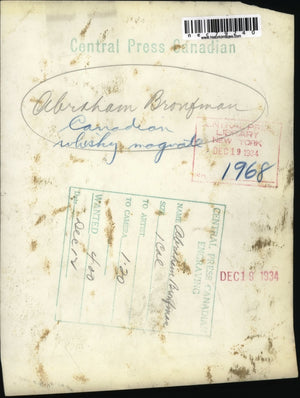 Central Press Canadian
Abraham Bronfman
Canadian
whisky magnate
LIBRARY
NEW YORK
DEC 19 1934
1968
CENTRAL PRESS CANADIAN
ENGRAVING
NAME Abraham Bronfman
SIZE 1 Col
TO ARTIST
TO CAMERA 1:30
WANTED 4:00
DEC 19 1934